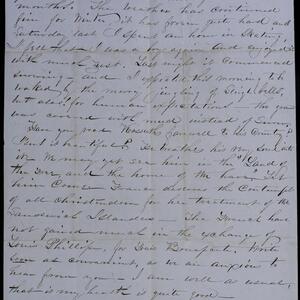 months. The Weather has continued
fine for Winter, it has frozen quite hard and
Saturday last I spent an hour in Skating.
I felt as I was a boy again and enjoyed it
with much zest. Last night it commenced
snowing — and I expected this morning to b
waked by the merry jingling of Sleigh bells,
but alas! for human expectations — the gro
was covered with mud instead of Snow
Have you read Kossuth farewell to his Country?
But is beautiful? He has my
it. We may yet see him in the "Land of
the free and the home of the brave." Let
him Come France deserves the Contempt
of all Christendom for her treatment of the
Sandwich Islanders — The French have
not gained much in the exchange of
Louis Phillip, for Louis Bonaparte. Write
soon as convenient, as we are anxious to
hear from you — I am well as usual,
that is my health is quite good